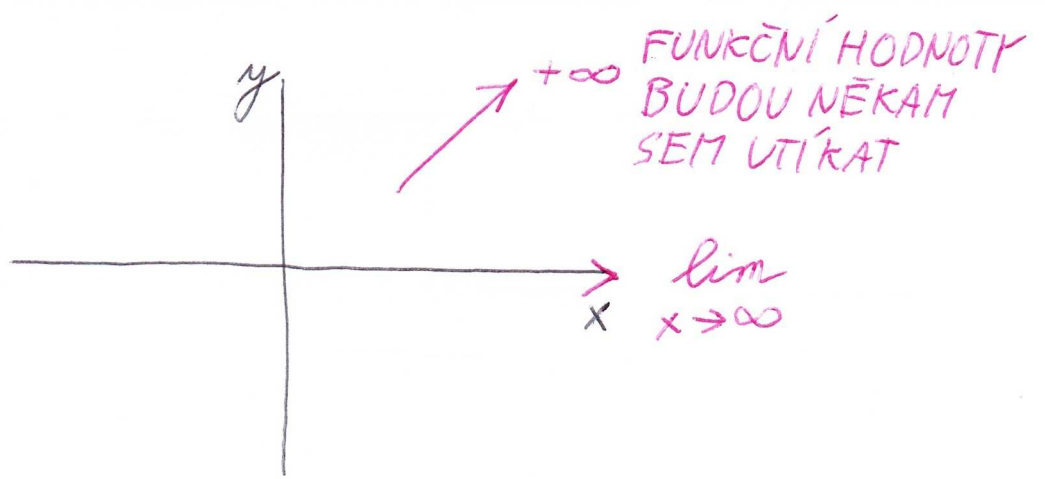 y
+∞
FUNKČNÍ HODNOTY
BUDOU NĚKAM
SEM UTÍKAT
x
lim
x→∞